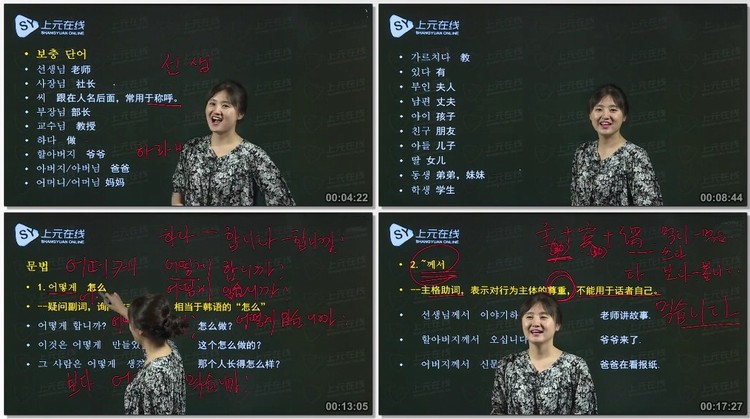 SY 上元在线
SHANGYUAN ONLINE
• 보충 단어
• 선생님 老师
• 사장님 社长
• 씨 跟在人名后面，常用于称呼。
• 부장님 部长
• 교수님 教授
• 하다 做
• 할아버지 爷爷
• 아버지/아버님 爸爸
• 어머니/어머님 妈妈
00:04:22
SY 上元在线
SHANGYUAN ONLINE
• 가르치다 教
• 있다 有
• 부인 夫人
• 남편 丈夫
• 아이 孩子
• 친구 朋友
• 아들 儿子
• 딸 女儿
• 동생 弟弟，妹妹
• 학생 学生
00:08:44
SY 上元在线
SHANGYUAN ONLINE
하다
합니다
합니까
문법
어떠케
어떻게 합니까?
• 1. 어떻게 怎么
• 一疑问副词，询
相当于韩语的“怎么”
어떻게 합니까?
怎么做？
• 이것은 어떻게 만들
这个怎么做的？
• 그 사람은 어떻게 생
那个人长得怎么样？
보다
00:13:05
SY 上元在线
SHANGYUAN ONLINE
主+宾+谓
• 2. ~께서
• 一主格助词，表示对行为主体的尊重，不能用于话者自己。
• 선생님께서 이야기하
老师讲故事.
• 할아버지께서 오십니
爷爷来了.
• 아버지께서 신문
爸爸在看报纸.
00:17:27